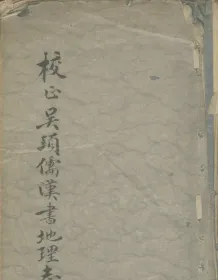 校正吳頊儒漢書地理志